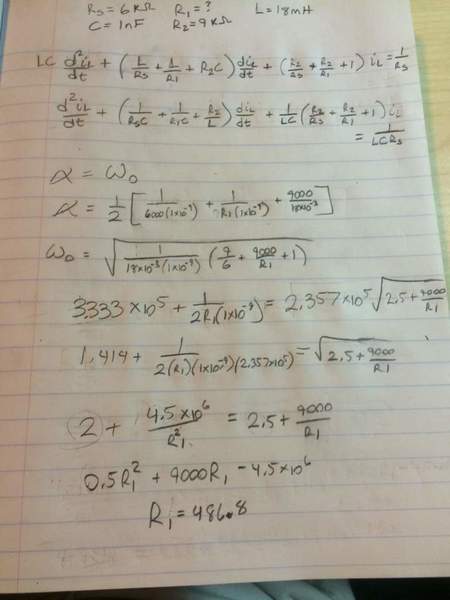 Rs = 6 KΩ R₁ = ? L = 18 mH
C = 1nF R₂ = 9 KΩ
LC d²iL/dt + (L/Rs + L/R₁ + R₂C) diL/dt + (R₂/Rs + R₂/R₁ + 1) iL = 1/Rs
d²iL/dt + (1/RsC + 1/R₁C + R₂/L) diL/dt + 1/LC (R₂/Rs + R₂/R₁ + 1) iL
= 1/LCRs
α = ω₀
α = 1/2 [ 1/6000(1×10⁻⁹) + 1/R₁(1×10⁻⁹) + 9000/18×10⁻³ ]
ω₀ = √( 1/18×10⁻³(1×10⁻⁹) (9/6 + 9000/R₁ + 1) )
3.333 ×10⁵ + 1/2R₁(1×10⁻⁹) = 2.357×10⁵ √( 2.5 + 9000/R₁ )
1.414 + 1/2(R₁)(1×10⁻⁹)(2.357×10⁵) = √( 2.5 + 9000/R₁ )
2 + 4.5×10⁶/R₁² = 2.5 + 9000/R₁
0.5R₁² + 9000R₁ - 4.5×10⁶
R₁ = 486.8